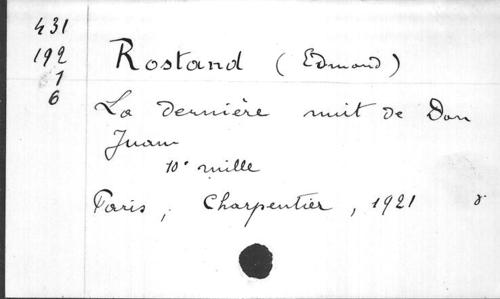 431
192
1
6
Rostand (Edmond)
La dernière nuit de Don
Juan
10e mille
Paris, Charpentier, 1921